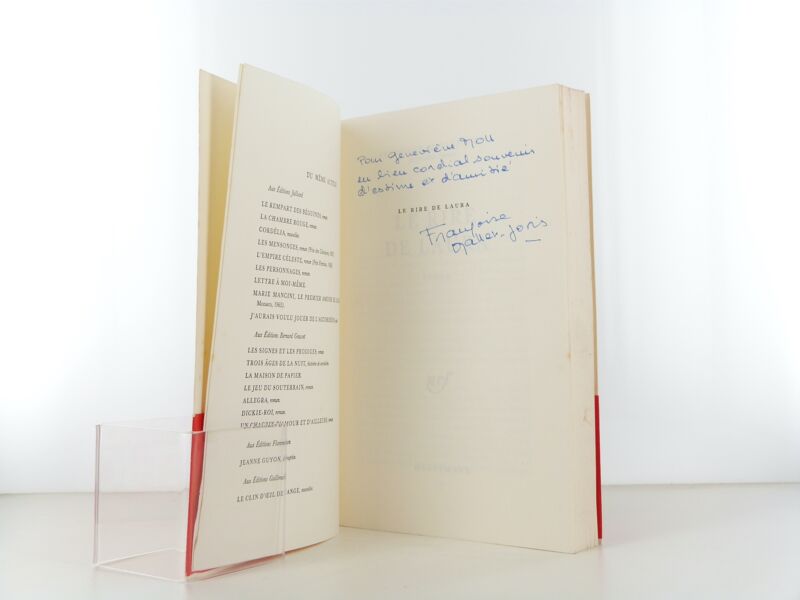 DU MÊME AUTEUR
Aux Éditions Julliard
LE REMPART DES BÉGUINES, roman.
LA CHAMBRE ROUGE, roman.
CORDÉLIA, nouvelles.
LES MENSONGES, roman (Prix des Libraires,
L'EMPIRE CÉLESTE, roman (Prix Femina,
LES PERSONNAGES, roman.
LETTRE À MOI-MÊME.
MARIE MANCINI, LE PREMIER AMOUR DE
Monaco,
J'AURAIS VOULU JOUER DE L'ACCORDÉON
Aux Éditions Bernard Grasset
LES SIGNES ET LES PRODIGES, roman.
TROIS ÂGES DE LA NUIT, histoires de sorcellerie.
LA MAISON DE PAPIER.
LE JEU DU SOUTERRAIN, roman.
ALLEGRA, roman.
DICKIE-ROI, roman.
UN CHAGRIN D'AMOUR ET D'AILLEURS, roman.
Aux Éditions Flammarion
JEANNE GUYON,
Aux Éditions Gallimard
LE CLIN D'ŒIL DE L'ANGE, nouvelles.
Pour Geneviève Moll
en bien cordial souvenir
d'estime et d'amitié
LE RIRE DE LAURA
Françoise
Mallet-Joris
LE RIRE
DE LAURA
roman
nrf
GALLIMARD